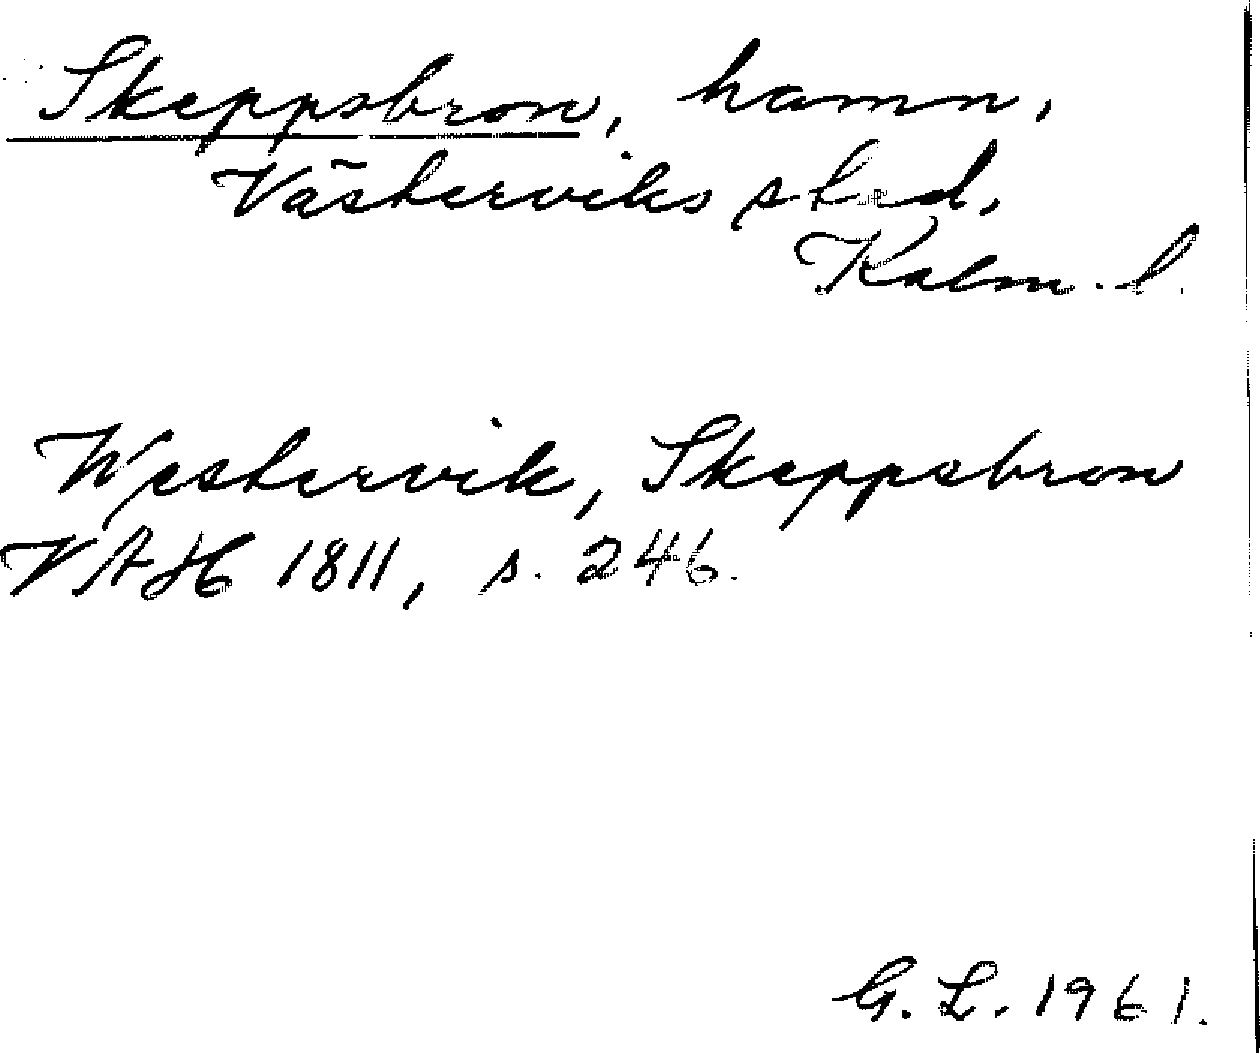 Skeppsbron, hamn,
Västerviks stad,
Kalm. l.
Westervik, Skeppsbron
VAH 1811, s. 246.
G. L. 1961.